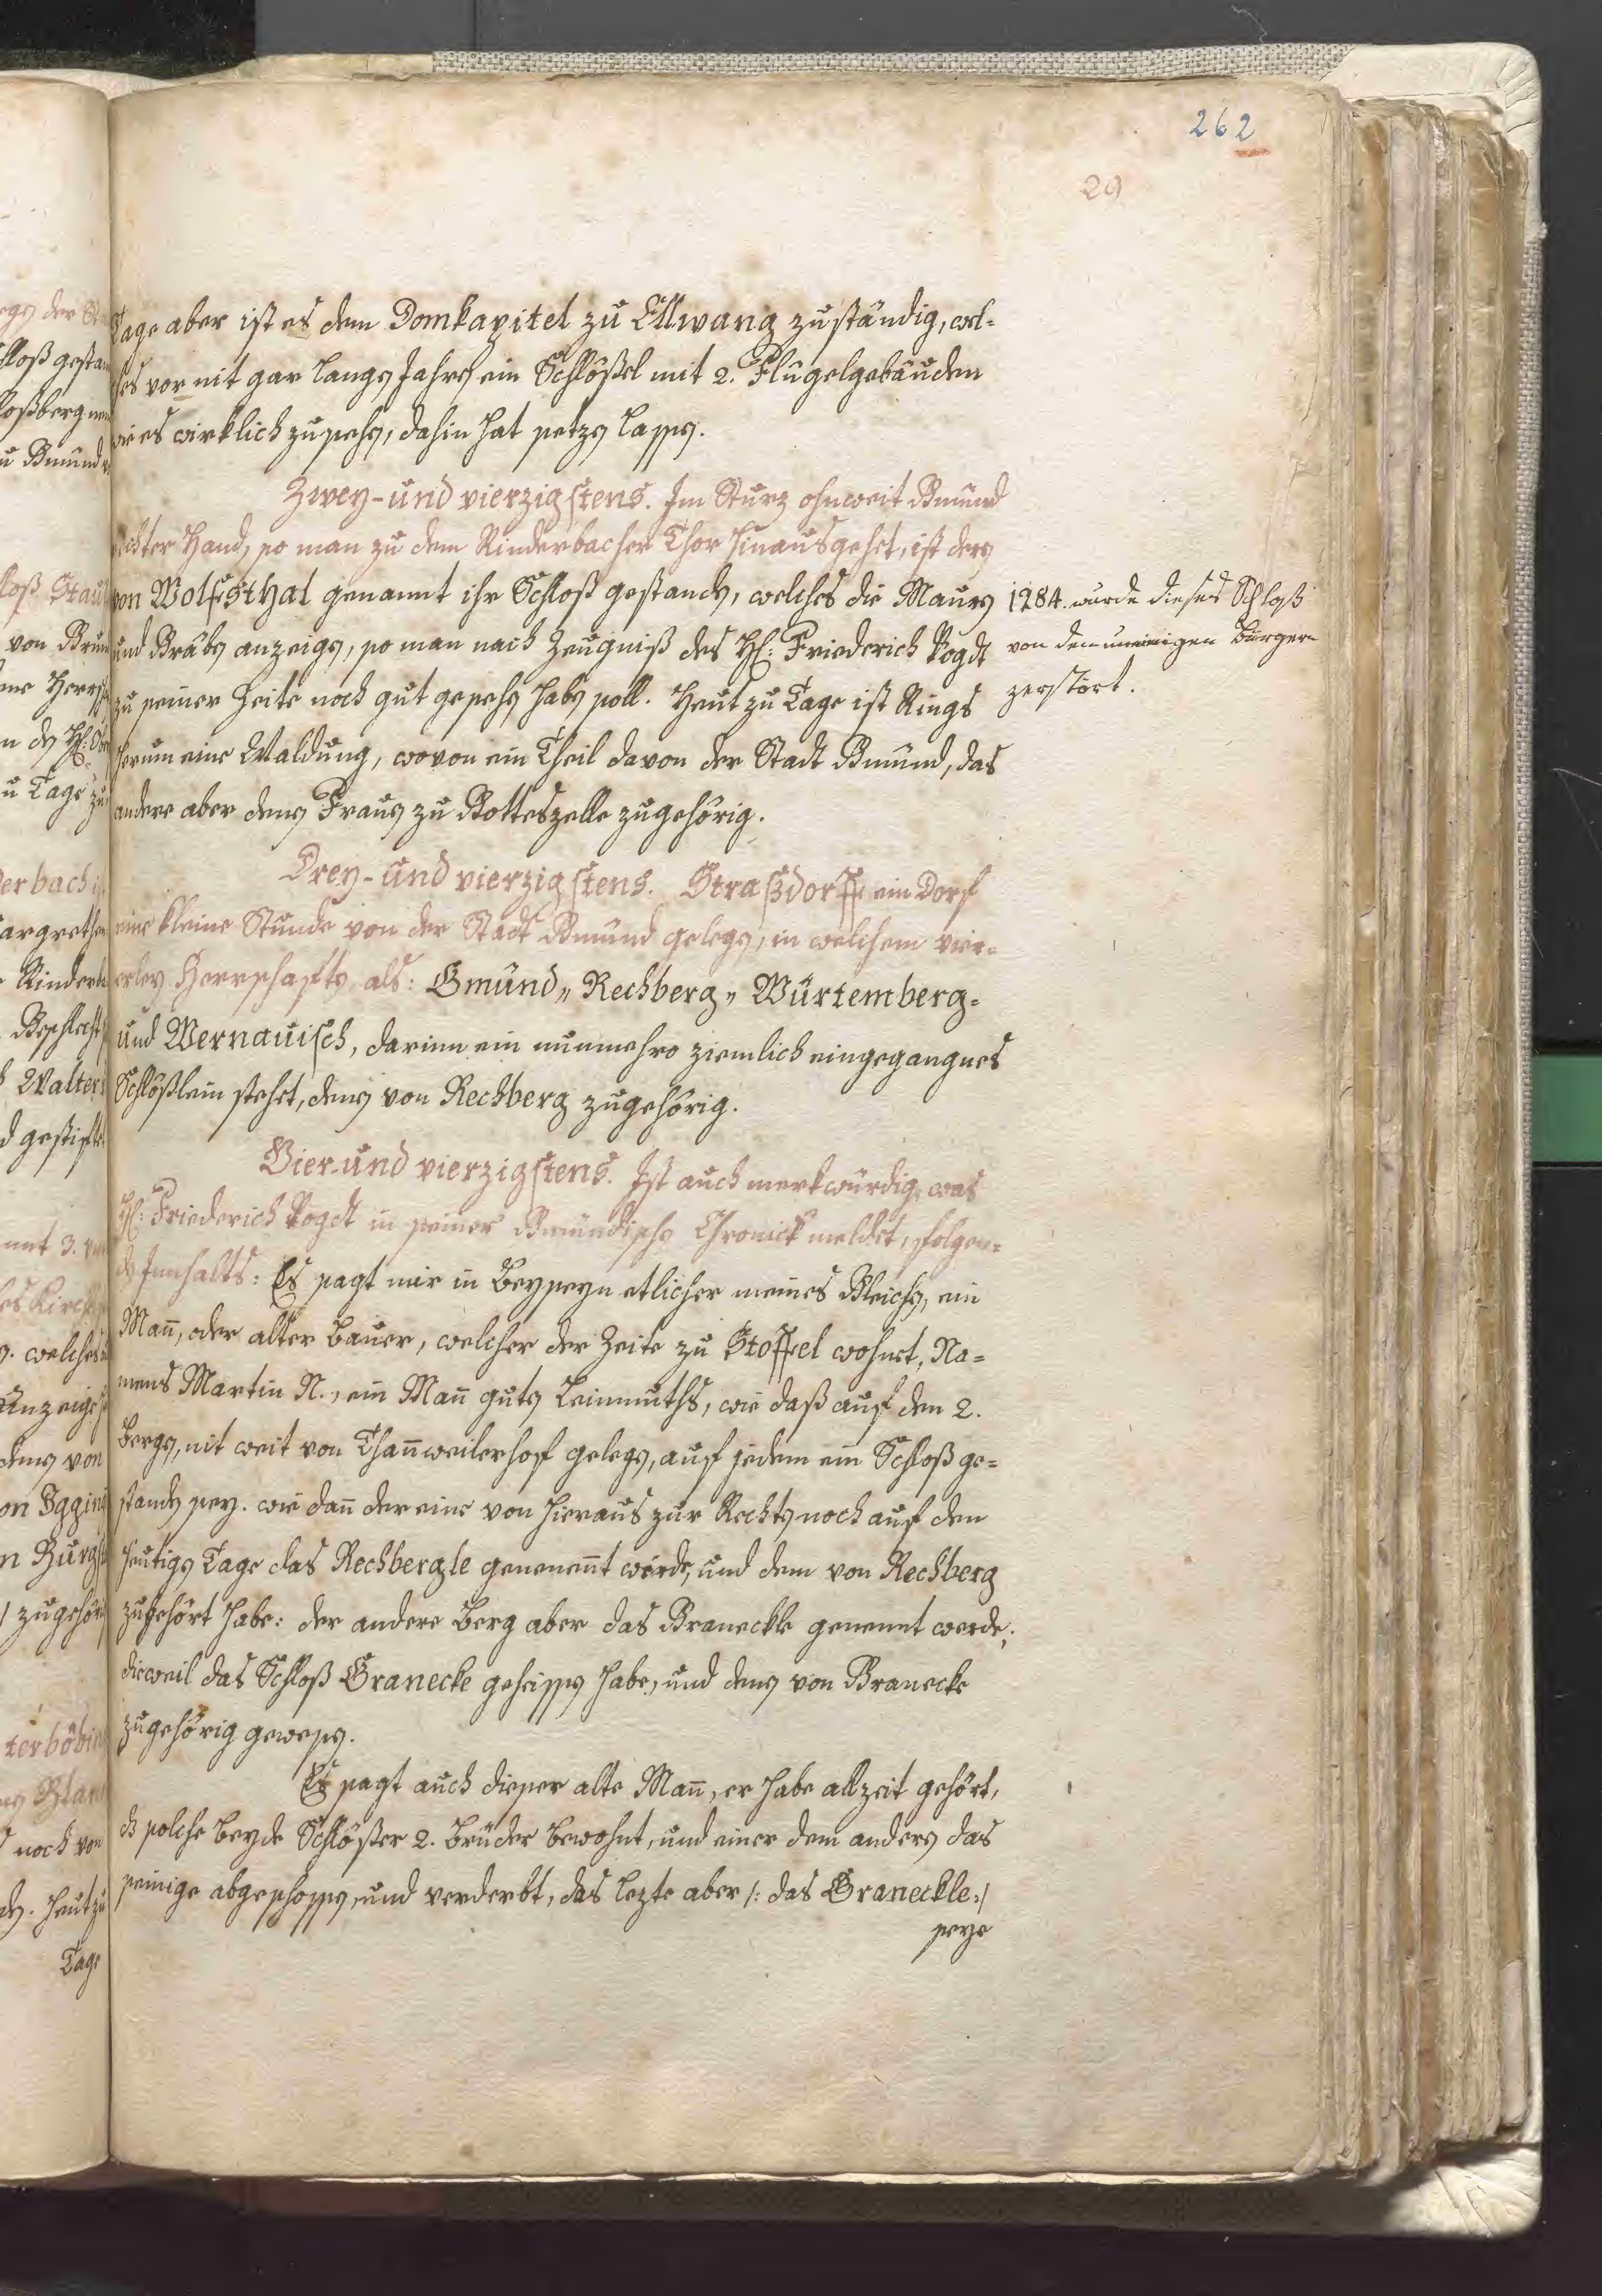 262
29
Tage aber ist es dem Domkapitel zu Ellwang zuständig, wel=
ches vor nit gar langen Jahren ein Schlößel mit 2. Flügelgebäuden
wie es wirklich zusehen, dahin hat setzen lassen.
Zwey- und vierzigstens. Im Sturz ohnweit Gmünd
rechter Hand, so man zu dem Rinderbacher Thor hinausgehet, ist deren
von Wolfsthal genannt ihr Schloß gestanden, welches die Mauren
und Gräben anzeigen, so man nach Zeugniß des H: Friederich Vogdt
zu seiner Zeite noch gut gesehen haben soll. Heut zu Tage ist Rings
herum eine Waldung, wovon ein Theil davon der Stadt Gmünd, das
andere aber denen Frauen zu Gotteszelle zugehörig.
1284. wurde dieses Schloß
von den uneinigen Bürgern
zerstört.
Drey- und vierzigstens. Straßdorff ein Dorf
eine kleine Stunde von der Stadt Gmünd gelegen, in welchem vier=
erley Herrschaften, als: Gmünd,, Rechberg,, Würtemberg=
und Wernauisch, darinn ein nunmehro ziemlich eingegangnes
Schlößlein stehet, denen von Rechberg zugehörig.
Vier-und vierzigstens. Ist auch merkwürdig, was
H: Friederich Vogdt in seiner Gmündischen Chronick meldet, folgen=
den Innhalts: Es sagt mir in Beyseyn etlicher meines Gleichen, ein
Mañ, oder alter Bauer, welcher der Zeite zu Stoffel wohnet, Na=
mens Martin N., ein Mañ guten Leinmuths, wie daß auf den 2.
Bergen, nit weit von Thañweilerhof gelegen, auf jedem ein Schloß ge=
standen sey. wie dañ der eine von hieraus zur Rechten noch auf den
heutigen Tage das Rechbergle geneneñt wird, und dem von Rechberg
zugehört habe: der andere Berg aber das Graneckle genennt werde,
dieweil das Schloß Granecke geheissen habe, und denen von Granecke
zugehörig gewesen.
Es sagt auch dieser alte Mañ, er habe allzeit gehört,
dß solche beyde Schlößer 2. Brüder bewohnt, und einer dem andern das
seinige abgeschossen, und verderbt, das lezte aber /: das Graneckle :/
seye